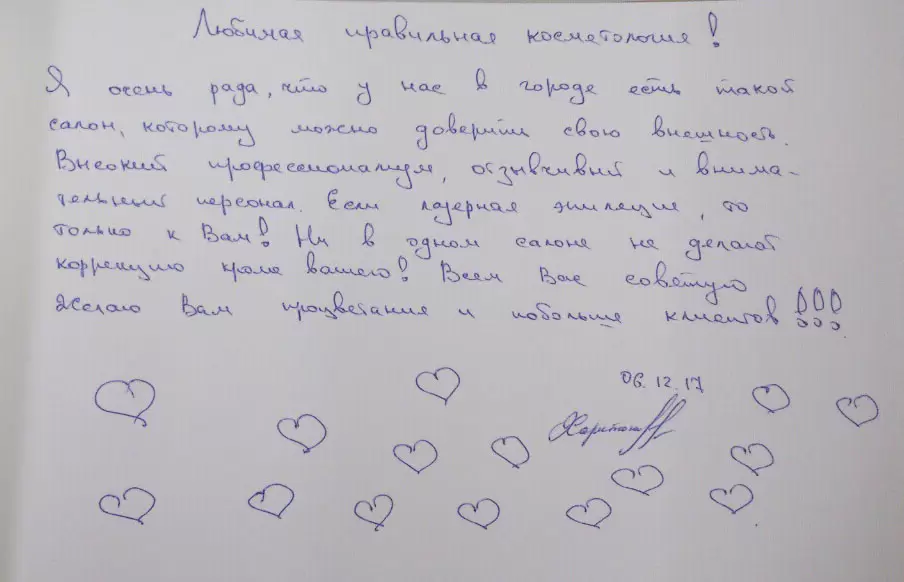 Любимая правильная косметология!
Я очень рада, что у нас в городе есть такой
салон, которому можно доверить свою внешность.
Высокий профессионализм, отзывчивый и внима-
тельный персонал. Если лазерная эпиляция, то
только к Вам! Ни в одном салоне не делают
коррекцию кроме вашего! Всем Вас советую
Желаю Вам процветания и побольше клиентов!!!
06.12.17